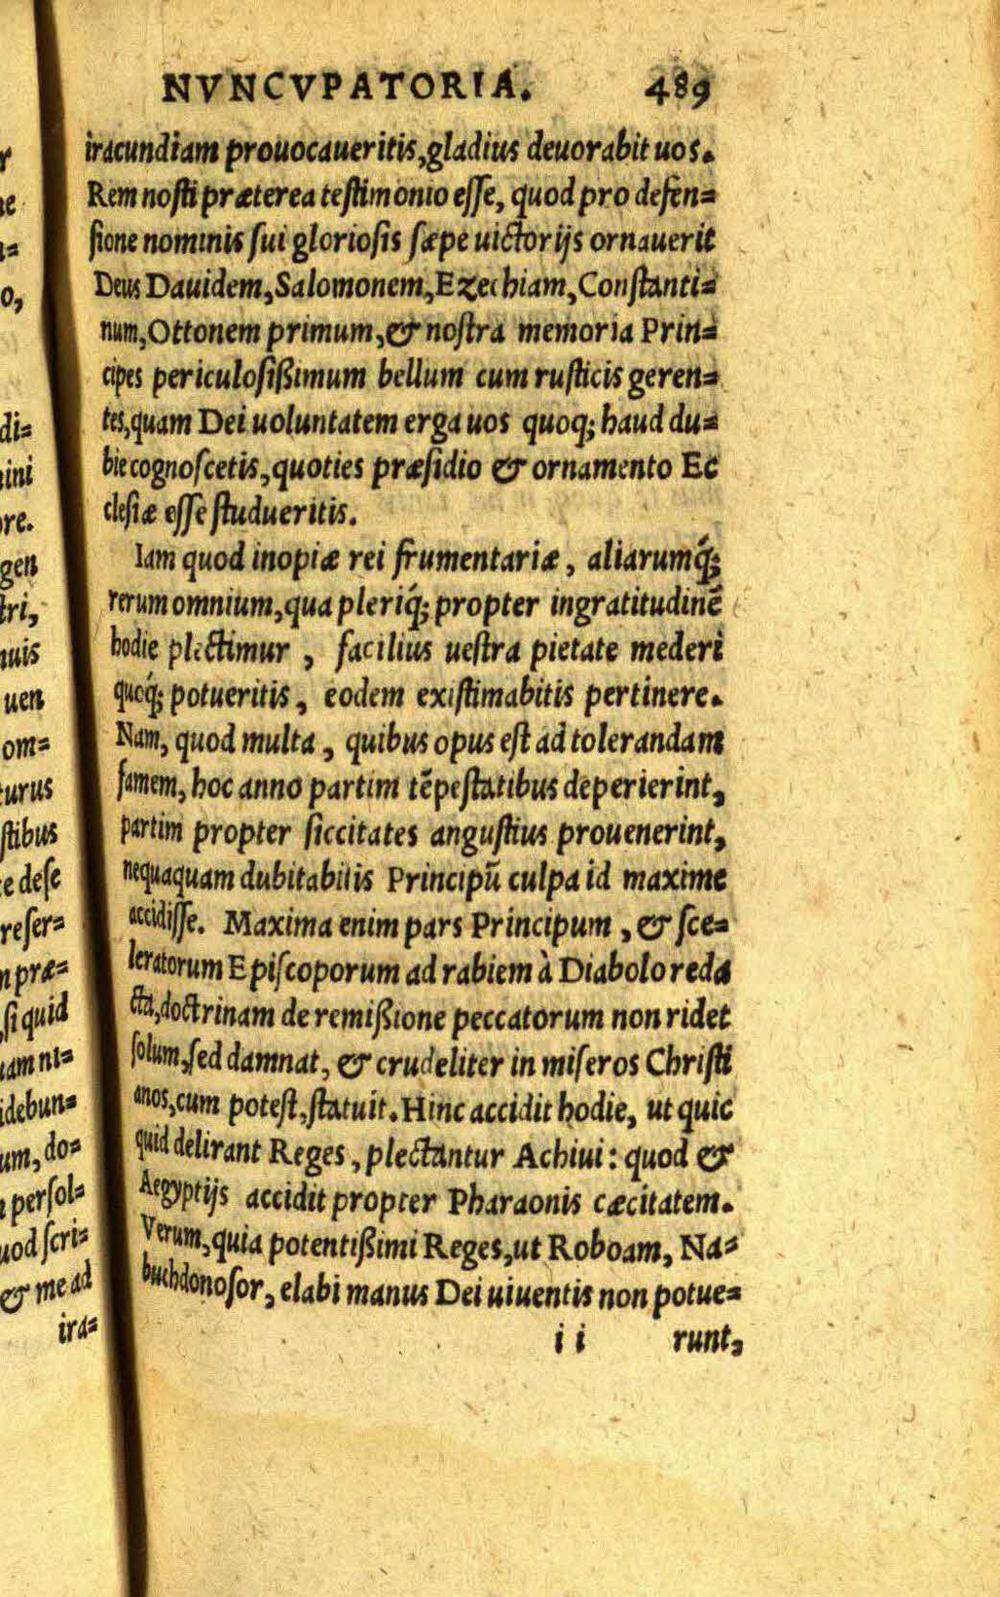 NVNCVPATORIA. 489
iracundiam prouocaueritis, gladius deuorabit uos.
Rem nosti præterea testimonio esse, quod pro defen=
sione nominis sui gloriosis sæpe uictorijs ornauerit
Deus Dauidem, Salomonem, Ezechiam, Constanti=
num, Ottonem primum, & nostra memoria Prin=
cipes periculosißimum bellum cum rusticis geren=
tes, quam Dei uoluntatem erga uos quoq; haud du=
bie cognoscetis, quoties præsidio & ornamento Ec
clesiæ esse studueritis.
Iam quod inopiæ rei frumentariæ, aliarumq́;
rerum omnium, qua pleriq́; propter ingratitudinē
hodie plectimur, facilius uestra pietate mederi
quoq́; potueritis, eodem existimabitis pertinere.
Nam, quod multa, quibus opus est ad tolerandam
famem, hoc anno partim tēpestatibus deperierint,
partim propter siccitates angustius prouenerint,
nequaquam dubitabitis Principū culpa id maxime
accidisse. Maxima enim pars Principum, & sce=
leratorum Episcoporum ad rabiem à Diabolo reda
cta, doctrinam de remißione peccatorum non ridet
solum, sed damnat, & crudeliter in miseros Christi
anos, cum potest, statuit. Hinc accidit hodie, ut quic
quid delirant Reges, plectantur Achiui: quod &
Aegyptijs accidit propter Pharaonis cæcitatem.
Verum, quia potentißimi Reges, ut Roboam, Na=
buchdonosor, elabi manus Dei uiuentis non potue=
i i runt,
ne
o,
di=
ini
re.
gen
tri,
nuis
uen
om=
turus
stibus
e dese
reser=
n præ=
si quid
iam ni=
idebun=
um, do=
persol=
uod scri=
& me ad
ira=